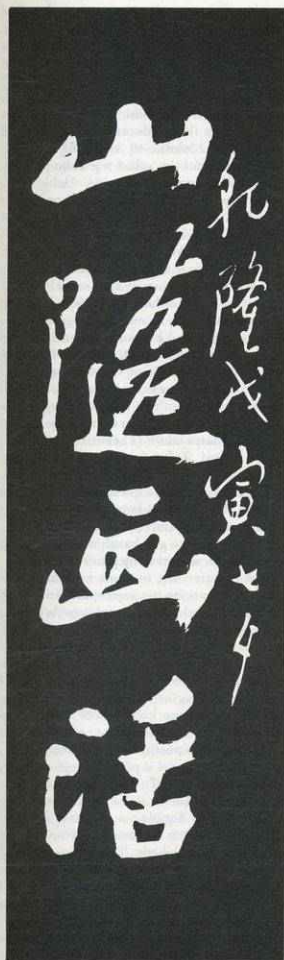 乾隆戊寅七夕
山隨画活